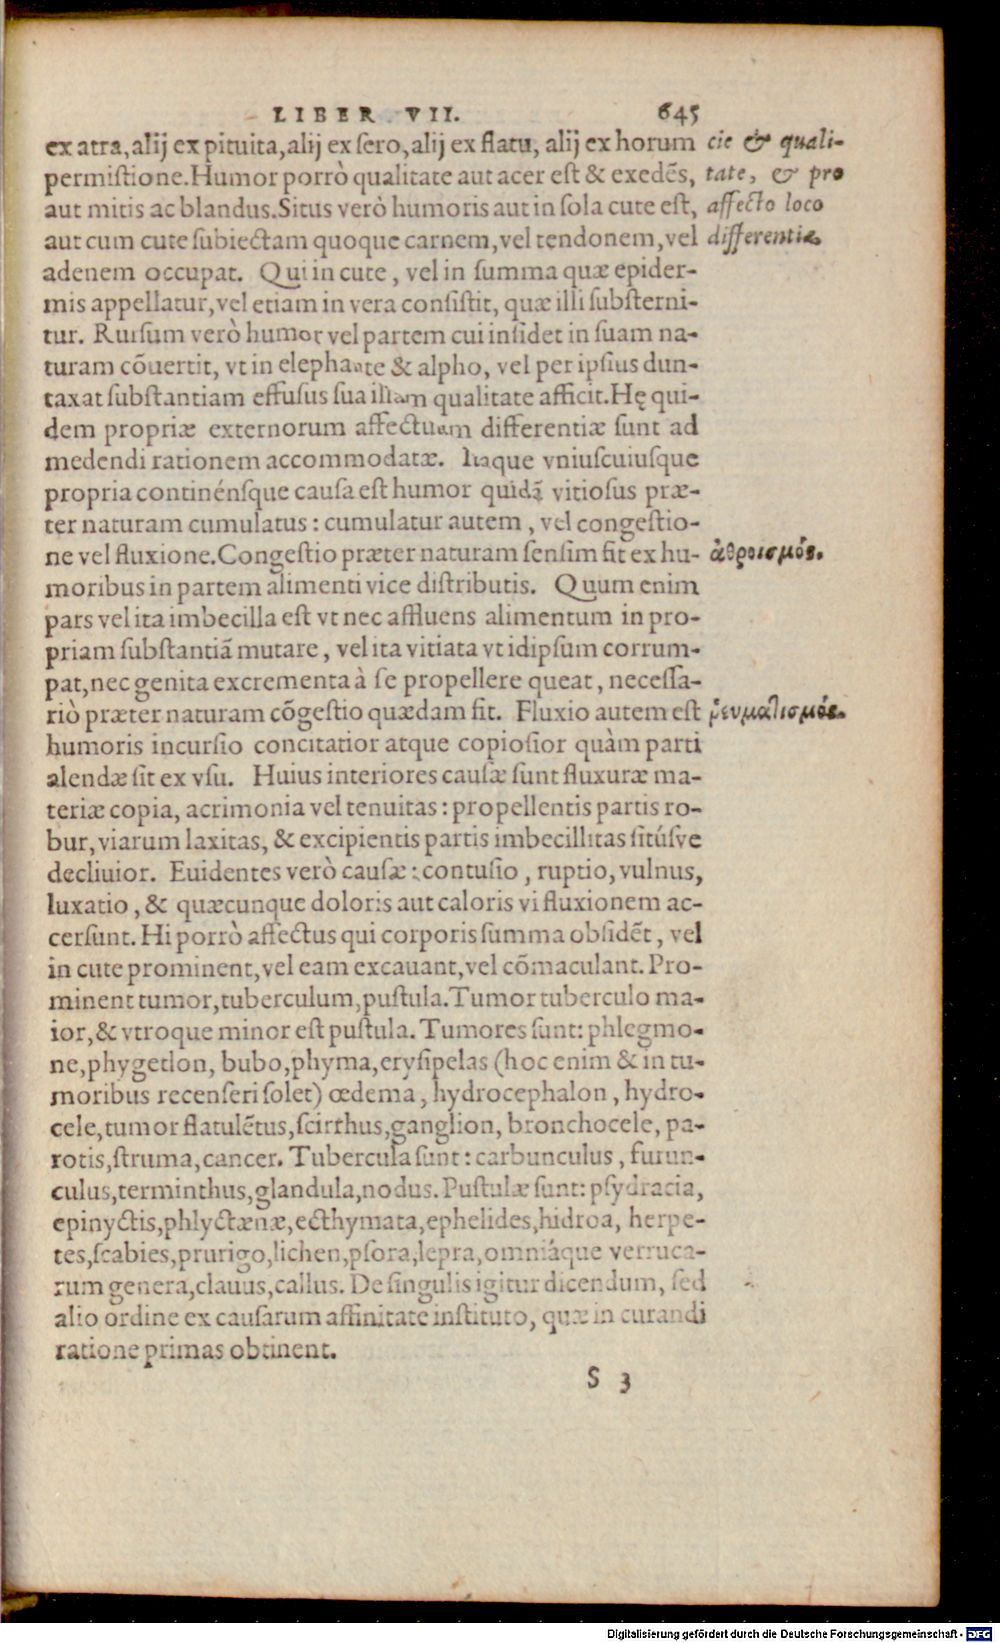 LIBER VII. 645
ex atra, alij ex pituita, alij ex sero, alij ex flatu, alij ex horum
permistione. Humor porrò qualitate aut acer est & exedẽs,
aut mitis ac blandus. Situs verò humoris aut in sola cute est,
aut cum cute subiectam quoque carnem, vel tendonem, vel
adenem occupat. Qui in cute, vel in summa quæ epider-
mis appellatur, vel etiam in vera consistit, quæ illi substerni-
tur. Rursum verò humor vel partem cui insidet in suam na-
turam cõuertit, vt in elephante & alpho, vel per ipsius dun-
taxat substantiam effusus sua illam qualitate afficit. Hę qui-
dem propriæ externorum affectuum differentiæ sunt ad
medendi rationem accommodatæ. Itaque vniuscuiusque
propria continénsque causa est humor quidã vitiosus præ-
ter naturam cumulatus: cumulatur autem, vel congestio-
ne vel fluxione. Congestio præter naturam sensim fit ex hu-
moribus in partem alimenti vice distributis. Quum enim
pars vel ita imbecilla est vt nec affluens alimentum in pro-
priam substantiã mutare, vel ita vitiata vt id ipsum corrum-
pat, nec genita excrementa à se propellere queat, necessa-
riò præter naturam cõgestio quædam fit. Fluxio autem est
humoris incursio concitatior atque copiosior quàm parti
alendæ sit ex vsu. Huius interiores causæ sunt fluxuræ ma-
teriæ copia, acrimonia vel tenuitas: propellentis partis ro-
bur, viarum laxitas, & excipientis partis imbecillitas sitúsve
decliuior. Euidentes verò causæ: contusio, ruptio, vulnus,
luxatio, & quæcunque doloris aut caloris vi fluxionem ac-
cersunt. Hi porrò affectus qui corporis summa obsidẽt, vel
in cute prominent, vel eam excauant, vel cõmaculant. Pro-
minent tumor, tuberculum, pustula. Tumor tuberculo ma-
ior, & vtroque minor est pustula. Tumores sunt: phlegmo-
ne, phygetlon, bubo, phyma, erysipelas (hoc enim & in tu-
moribus recenseri solet) œdema, hydrocephalon, hydro-
cele, tumor flatulẽtus, scirrhus, ganglion, bronchocele, pa-
rotis, struma, cancer. Tubercula sunt: carbunculus, furun-
culus, terminthus, glandula, nodus. Pustulæ sunt: psydracia,
epinyctis, phlyctænæ, ecthymata, ephelides, hidroa, herpe-
tes, scabies, prurigo, lichen, psora, lepra, omniáque verruca-
rum genera, clauus, callus. De singulis igitur dicendum, sed
alio ordine ex causarum affinitate instituto, quæ in curandi
ratione primas obtinent.
S 3
cie & quali-
tate, & pro
affecto loco
differentiæ.
ἀθροισμός.
ῥευματισμός.
Digitalisierung gefördert durch die Deutsche Forschungsgemeinschaft - DFG